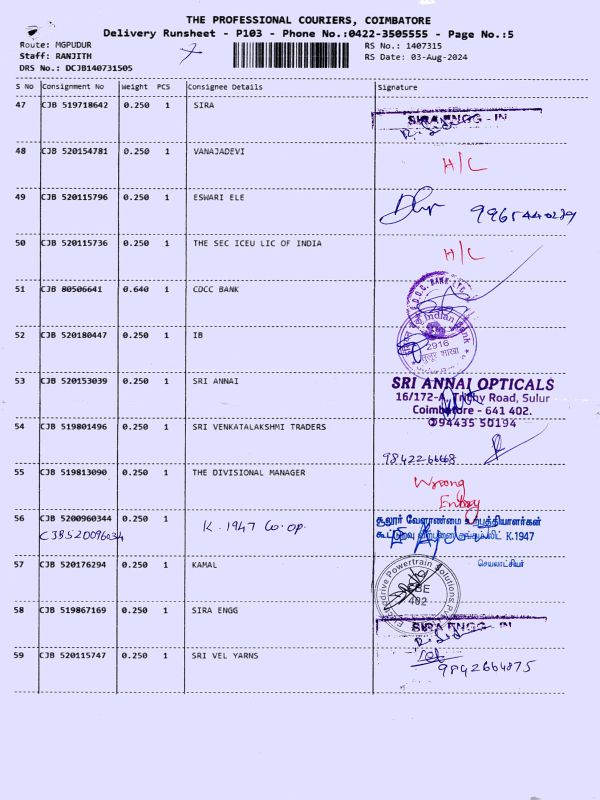 THE PROFESSIONAL COURIERS, COIMBATORE
Delivery Runsheet - P103 - Phone No.:0422-3505555 - Page No.:5
Route: MGPUDUR
RS No.: 1407315
Staff: RANJITH
RS Date: 03-Aug-2024
DRS No.: DCJB140731505
S No Consignment No Weight PCS Consignee Details Signature
47 CJB 519718642 0.250 1 SIRA
SIRA ENGG - IN
48 CJB 520154781 0.250 1 VANAJADEVI H/C
49 CJB 520115796 0.250 1 ESWARI ELE
50 CJB 520115736 0.250 1 THE SEC ICEU LIC OF INDIA H/C
51 CJB 80506641 0.640 1 CDCC BANK
52 CJB 520180447 0.250 1 IB
Indian Bank
2916
सुलूर शाखा
53 CJB 520153039 0.250 1 SRI ANNAI
SRI ANNAI OPTICALS
16/172-A, Trichy Road, Sulur
Coimbatore - 641 402.
94435 50194
54 CJB 519801496 0.250 1 SRI VENKATALAKSHMI TRADERS
55 CJB 519813090 0.250 1 THE DIVISIONAL MANAGER Wrong
Entry
56 CJB 5200960344 0.250 1 K. 1947 Co.op.
CJB520096034
சூலூர் வேளாண்மை உற்பத்தியாளர்கள்
K.1947
செயலாட்சியர்
57 CJB 520176294 0.250 1 KAMAL
Powertrain Solutions
58 CJB 519867169 0.250 1 SIRA ENGG
SIRA ENGG - IN
59 CJB 520115747 0.250 1 SRI VEL YARNS
9842664875